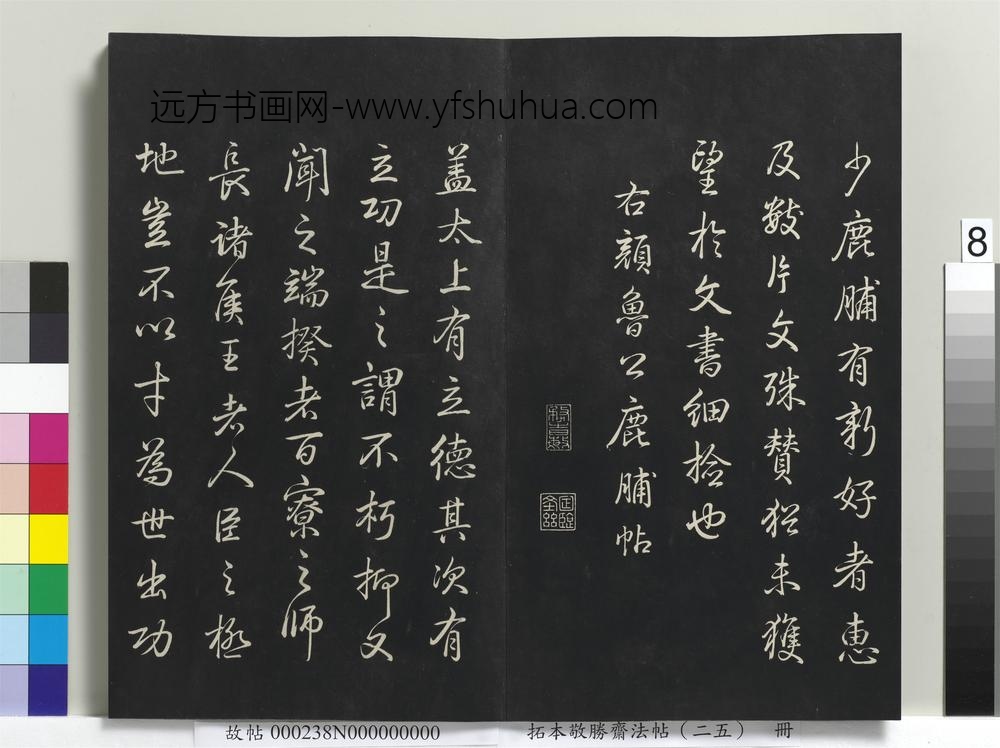 远方书画网-www.yfshuhua.com
少鹿脯有新好者惠
及數片文殊贊猶未獲
望於文書細捡也
右顔魯公鹿脯帖
蓋太上有立德其次有
立功是之謂不朽抑又
聞之端揆者百寮之師
長諸侯王者人臣之極
地豈不以才為世出功
8
故帖 000238N000000000
拓本敬勝齋法帖（二五） 冊